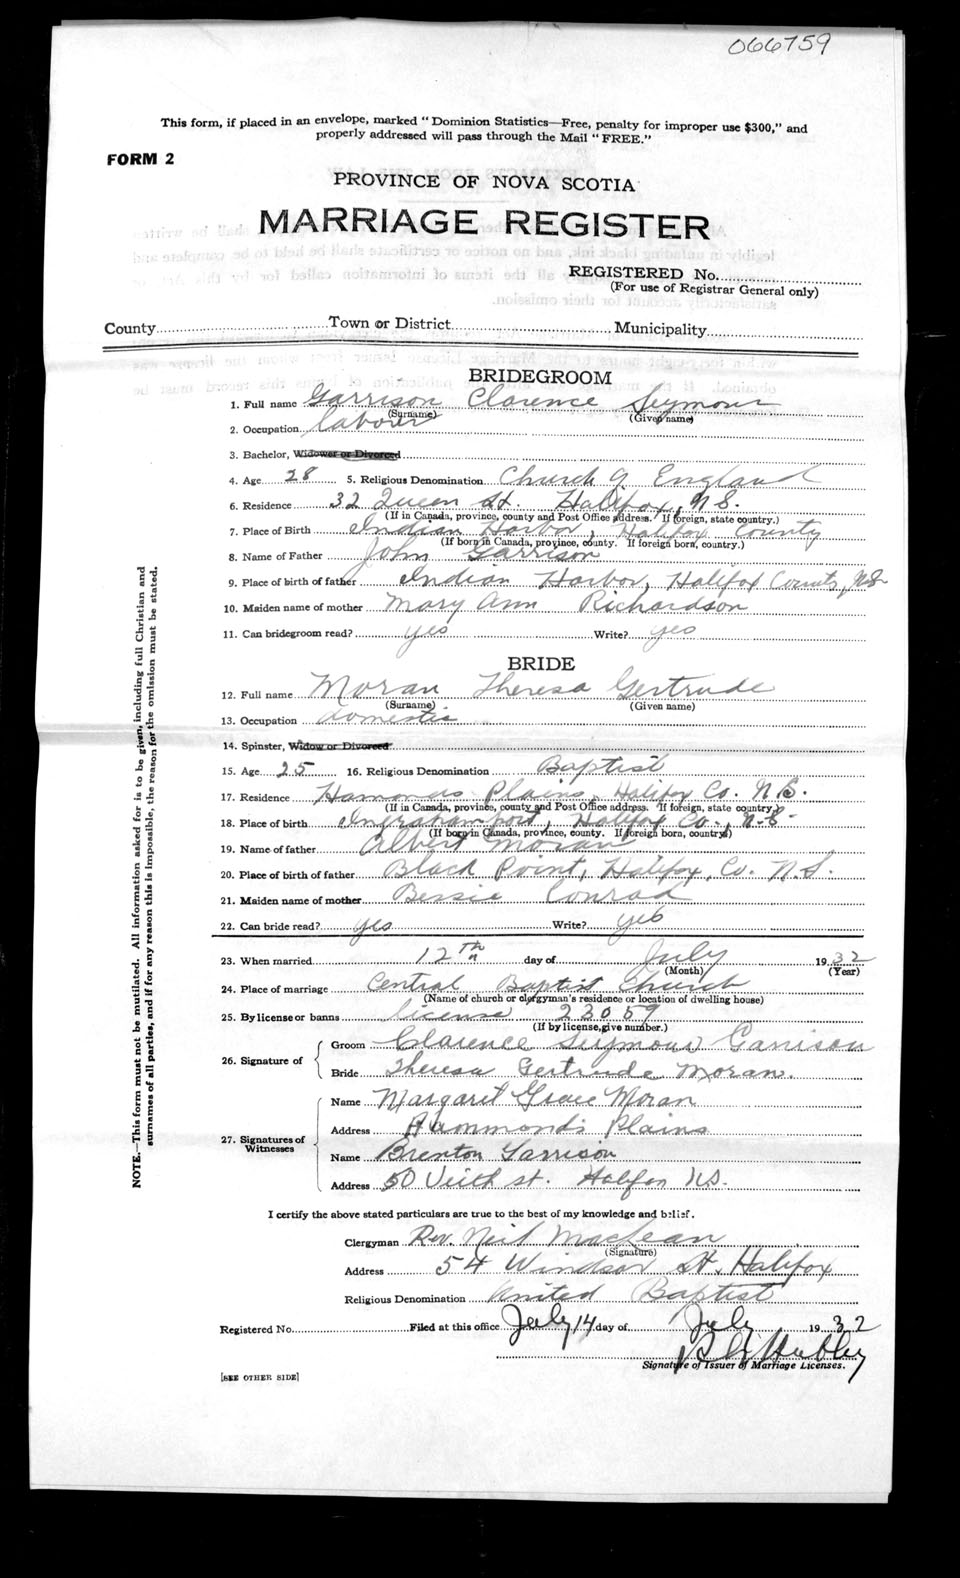 066759
This form, if placed in an envelope, marked "Dominion Statistics—Free, penalty for improper use $300," and
properly addressed will pass through the Mail "FREE."
FORM 2
PROVINCE OF NOVA SCOTIA
MARRIAGE REGISTER
REGISTERED No.
(For use of Registrar General only)
County Town or District Municipality
BRIDEGROOM
1. Full name Garrison Clarence Seymour
(Surname) (Given name)
2. Occupation labourer
3. Bachelor, Widower or Divorced
4. Age 28 5. Religious Denomination Church of England
6. Residence 32 Queen St. Halifax, N.S.
(If in Canada, province, county and Post Office address. If foreign, state country.)
7. Place of Birth Indian Harbor, Halifax County
(If born in Canada, province, county. If foreign born, country.)
8. Name of Father John Garrison
9. Place of birth of father Indian Harbor, Halifax County, N.S.
10. Maiden name of mother Mary Ann Richardson
11. Can bridegroom read? yes Write? yes
BRIDE
12. Full name Moran Theresa Gertrude
(Surname) (Given name)
13. Occupation domestic
14. Spinster, Widow or Divorced
15. Age 25 16. Religious Denomination Baptist
17. Residence Hamonds Plains, Halifax Co. N.S.
(If in Canada, province, county and Post Office address. If foreign, state country.)
18. Place of birth Ingramport, Halifax Co., N.S.
(If born in Canada, province, county. If foreign born, country)
19. Name of father Albert Moran
20. Place of birth of father Black Point, Halifax, Co. N.S.
21. Maiden name of mother Bessie Conrad
22. Can bride read? yes Write? yes
23. When married 12th day of July 1932
(Month) (Year)
24. Place of marriage Central Baptist Church
(Name of church or clergyman's residence or location of dwelling house)
25. By license or banns license 22059
(If by license, give number.)
26. Signature of Groom Clarence Seymour Garrison
Bride Theresa Gertrude Moran.
27. Signatures of Witnesses Name Margaret Grace Moran
Address Hammonds Plains
Name Brenton Garrison
Address 50 Veith St. Halifax N.S.
I certify the above stated particulars are true to the best of my knowledge and belief.
Clergyman Rev. Neil MacLean
(Signature)
Address 54 Windsor St. Halifax
Religious Denomination United Baptist
Registered No. Filed at this office July 14 day of July 1932
Signature of Issuer of Marriage Licenses.
[SEE OTHER SIDE]
NOTE.—This form must not be mutilated. All information asked for is to be given, including full Christian and
surnames of all parties, and if for any reason this is impossible, the reason for the omission must be stated.